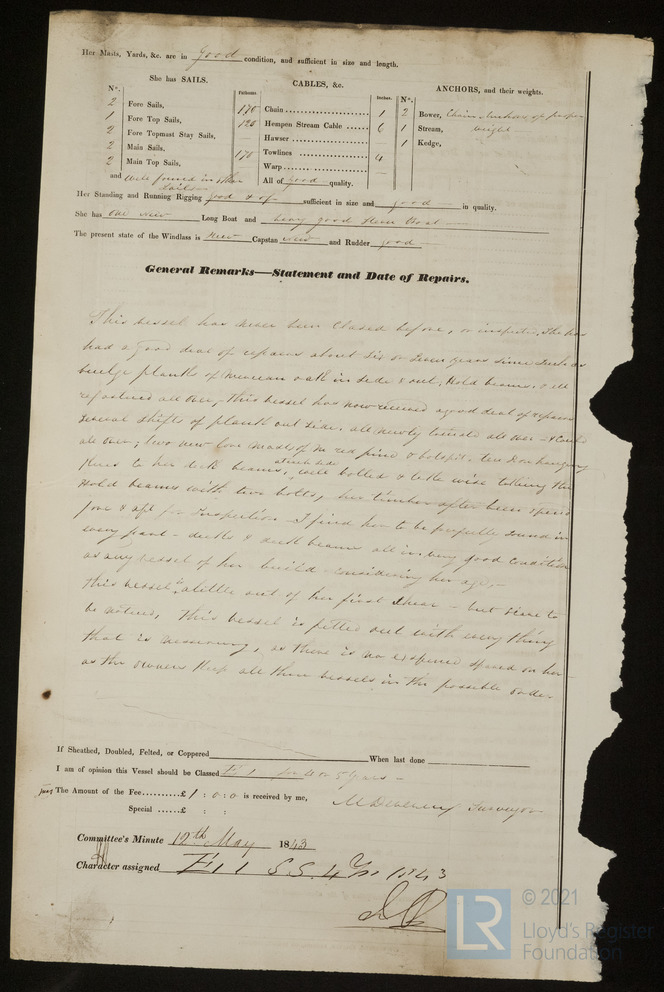 Her Masts, Yards, &c. are in good condition, and sufficient in size and length.
She has SAILS.
CABLES, &c.
ANCHORS, and their weights.
N°.
Fathoms
Inches.
N°.
2 Fore Sails,
1 Fore Top Sails,
2 Fore Topmast Stay Sails,
2 Main Sails,
2 Main Top Sails,
and well found in other Sails
170 Chain 1
120 Hempen Stream Cable 6
Hawser
170 Towlines 4
Warp
All of good quality.
2 Bower, Chain Anchors of proper
1 Stream, weight
1 Kedge,
Her Standing and Running Rigging good & of sufficient in size and good in quality.
She has one new Long Boat and
The present state of the Windlass is New Capstan new and Rudder good
General Remarks—Statement and Date of Repairs.
This vessel has never been Classed before, or inspected, She has
had a good deal of repairs about Six or Seven years since Such as
buelge planks of oak in side & out, Hold beams
refastned all over, This vessel has now received a good deal of repairs
several shifts of plank out side, all newly all over &
all over; two new lower masts of red pine & bolspit - ten Iron hanging
knees to her deck beams, well bolted & like wise the
Hold beams with two bolts, her timber after been opend
fore & aft for Inspection I find her to be perfectle sound in
every part - decks & deck beams all in very good condition
as any vessel of her build considering her age,
this vessel is a little out of her first Shear - but
be noticed, this vessel is fitted out with every thing
that is nessessary, as there is no expence spared on her
as the owners keep all their vessels in the possible order
If Sheathed, Doubled, Felted, or Coppered When last done
I am of opinion this Vessel should be Classed E 1 for 4 or 5 years
The Amount of the Fee £1 : 0 : 0 is received by me,
Surveyor
Special £ : :
Committee's Minute 12th May 1843
Character assigned E 1 S.S. 4 Yrs 1843
LR
© 2021
Lloyd's Register
Foundation